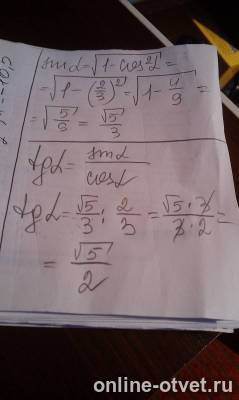 sinα = √1 - cos²α =
= √1 - (2/3)² = √1 - 4/9 =
= √5/9 = √5/3
tgα = sinα/cosα
tgα = √5/3 : 2/3 = √5 · 3/3 · 2 =
= √5/2
online-otvet.ru